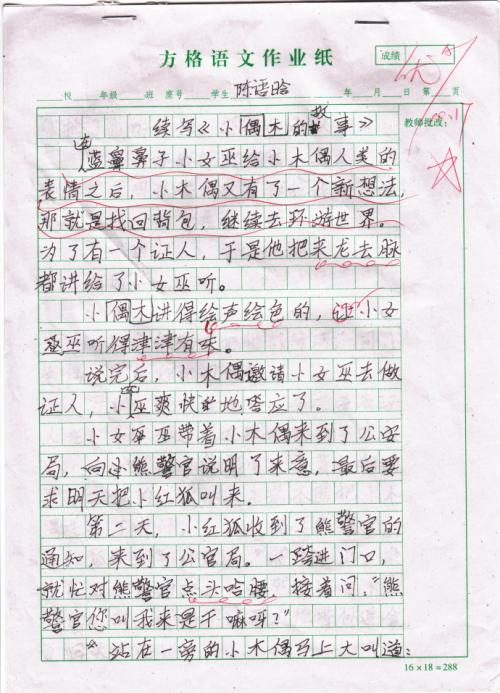 方格语文作业纸
成绩
优
校 年级 班 座号 学生 陈语晗 年 月 日 第 页
教师批改:
续写《小偶木的故事》
自蓝鼻鼻子小女巫给小木偶人类的
表情之后,小木偶又有了一个新想法,
那就是找回背包,继续去环游世界。
为了有一个证人,于是他把来龙去脉
都讲给了小女巫听。
小偶木讲得绘声绘色的,让小女
巫听得津津有味。
说完后,小木偶邀请小女巫去做
证人,小女巫爽快地答应了。
小女巫带着小木偶来到了公安
局,向小熊警官说明了来意,最后要
求明天把小红狐叫来。
第二天,小红狐收到了熊警官的
通知,来到了公官局。一跨进门口,
就忙对熊警官点头哈腰,接着问,“熊
警官您叫我来是干嘛呀?”
站在一旁的小木偶马上大叫道:
16×18=288